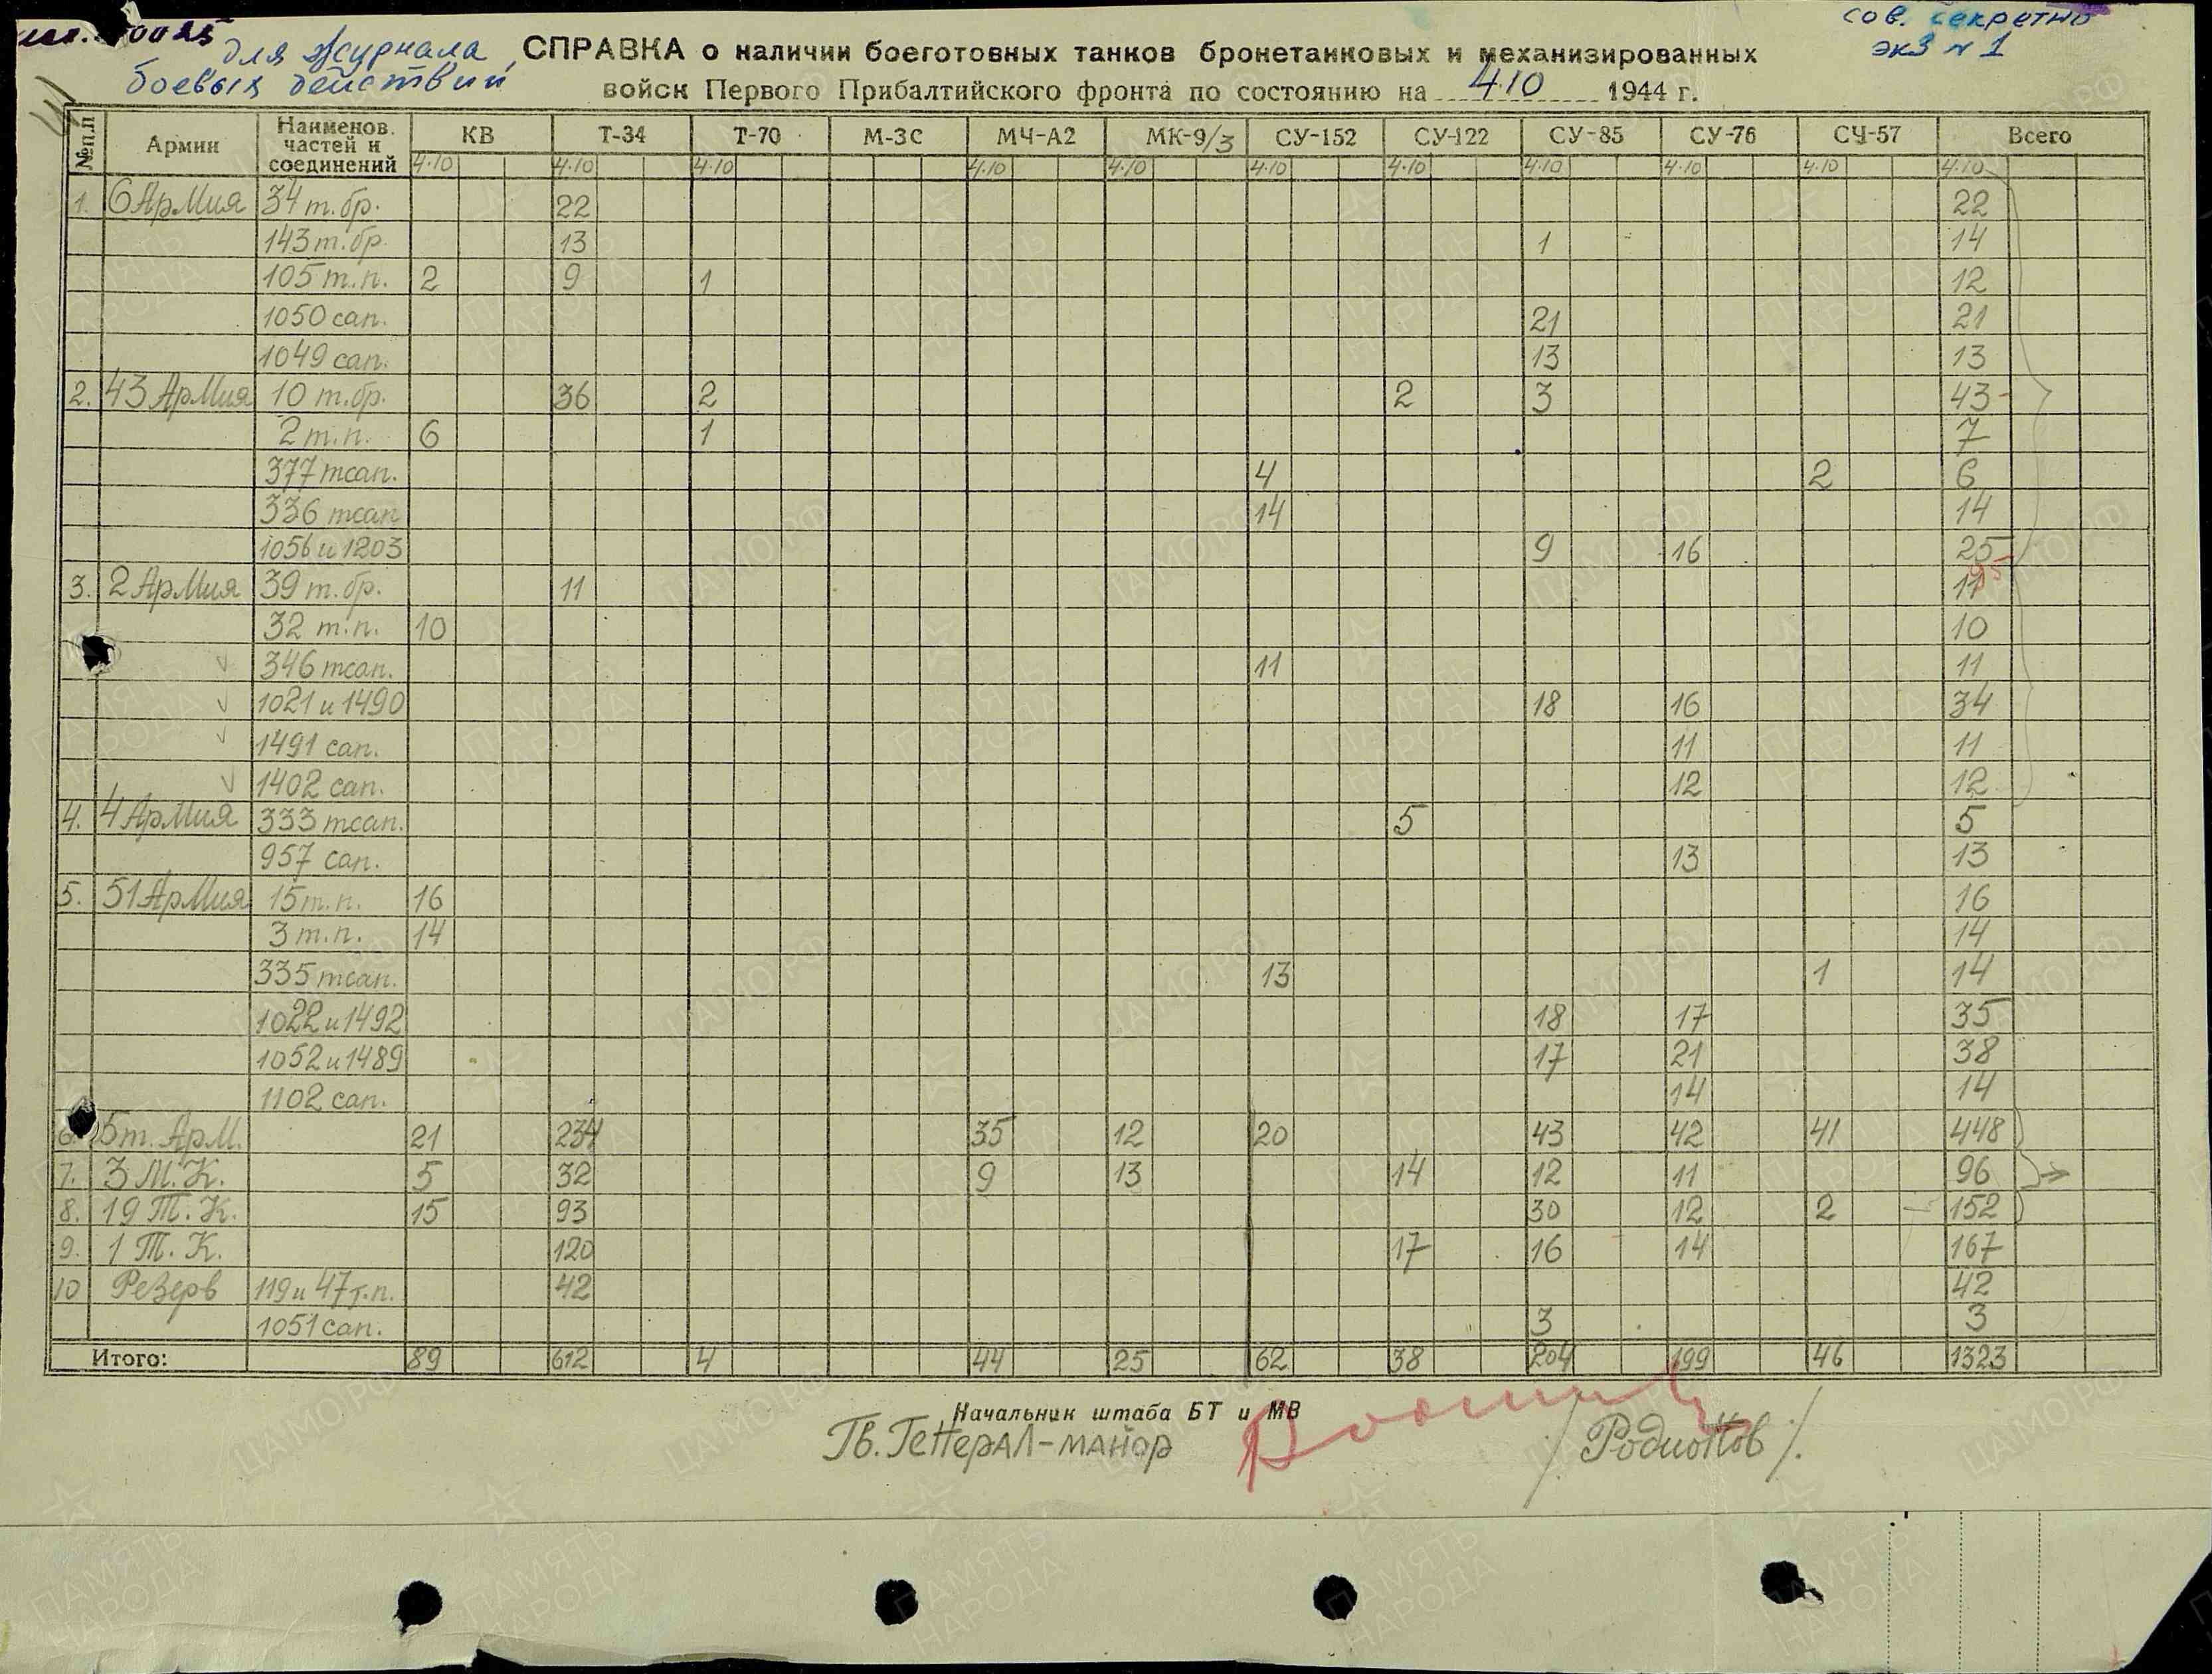 для журнала
боевых действий
сов. секретно
экз N 1
СПРАВКА о наличии боеготовных танков бронетанковых и механизированных
войск Первого Прибалтийского фронта по состоянию на 4.10 1944 г.
№ п.п Армии Наименов. частей и соединений КВ Т-34 Т-70 М-3С МЧ-А2 МК-9/3 СУ-152 СУ-122 СУ-85 СУ-76 СЧ-57 Всего
4.10 4.10 4.10 4.10 4.10 4.10 4.10 4.10 4.10 4.10 4.10
1. 6 Армия 34 т.бр. 22 22
143 т.бр. 13 1 14
105 т.п. 2 9 1 12
1050 сап. 21 21
1049 сап. 13 13
2. 43 Армия 10 т.бр. 36 2 2 3 43
2 т.п. 6 1 7
377 тсап. 4 2 6
336 тсап 14 14
1056 и 1203 9 16 25
3. 2 Армия 39 т.бр. 11 11
32 т.п. 10 10
346 тсап. 11 11
1021 и 1490 18 16 34
1491 сап. 11 11
1402 сап. 12 12
4. 4 Армия 333 тсап. 5 5
957 сап. 13 13
5. 51 Армия 15 т.п. 16 16
3 т.п. 14 14
335 тсап. 13 1 14
1022 и 1492 18 17 35
1052 и 1489 17 21 38
1102 сап. 14 14
6. 5 т. Арм. 21 234 35 12 20 43 42 41 448
7. 3 М.К. 5 32 9 13 14 12 11 96
8. 19 Т.К. 15 93 30 12 2 152
9. 1 Т.К. 120 17 16 14 167
10 Резерв 119 и 47 т.п. 42 42
1051 сап. 3 3
Итого: 89 612 4 44 25 62 38 204 199 46 1323
Начальник штаба БТ и МВ
Гв. Генерал-майор /Родионов/.